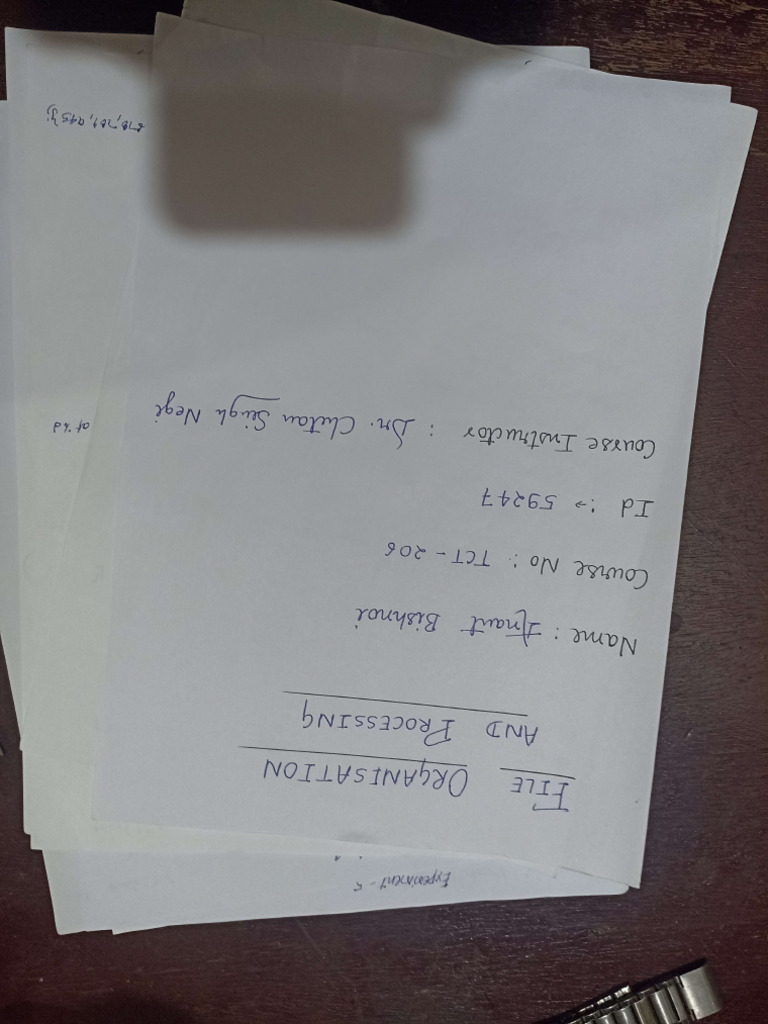 FILE ORGANISATION
AND PROCESSING
Name : Bishnoi
Course No : TCT - 206
Id :→ 59247
Course Instructor : Dr. Chetan Singh Negi
Experiment - 5